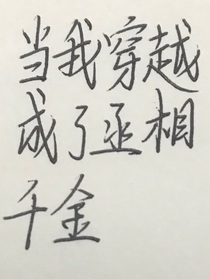 当我穿越
成了丞相
千金